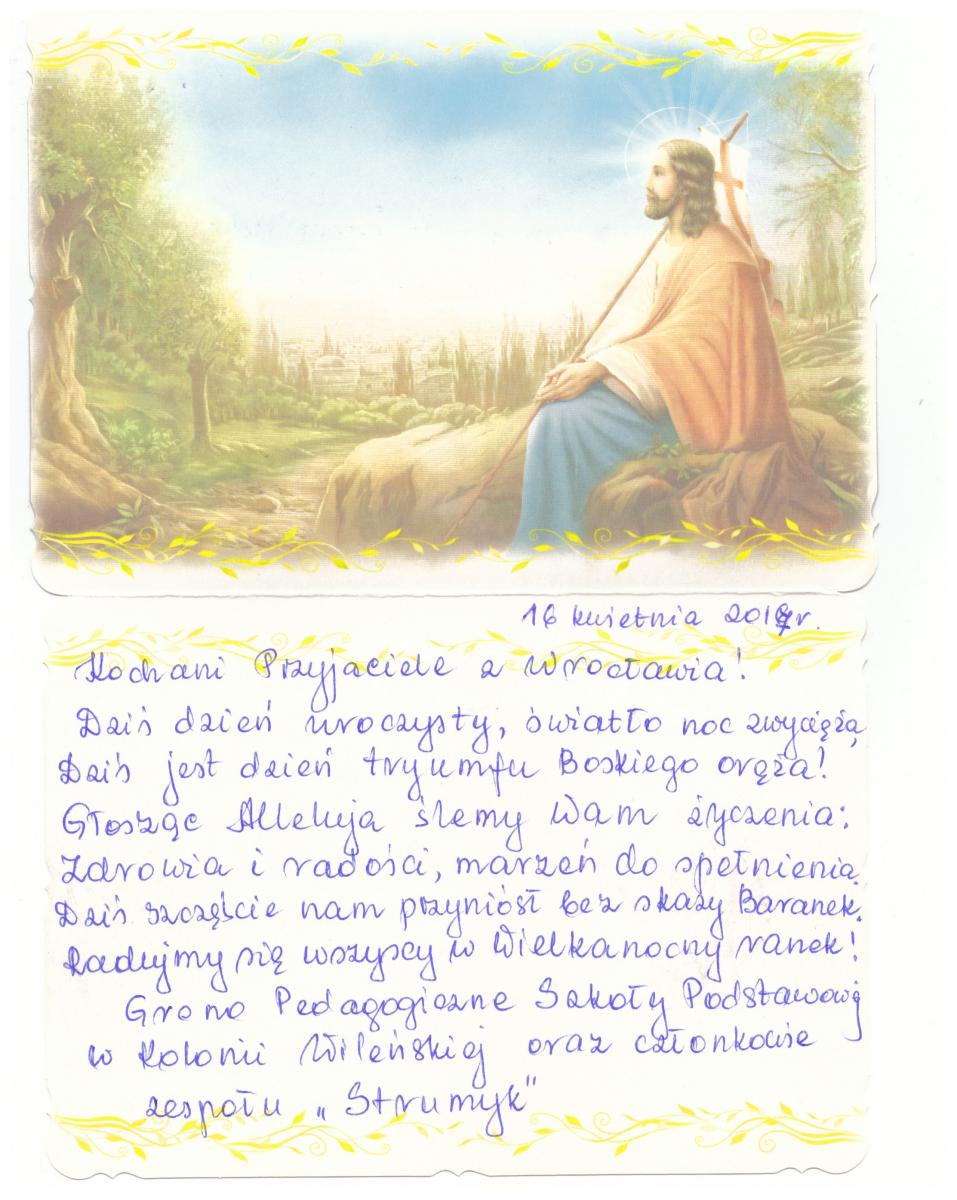 16 kwietnia 2017r.
Kochani Przyjaciele z Wrocławia!
Dziś dzień uroczysty, światło noc zwycięża,
Dziś jest dzień tryumfu Boskiego oręża!
Głosząc Alleluja ślemy Wam życzenia:
Zdrowia i radości, marzeń do spełnienia.
Dziś szczęście nam przyniósł bez skazy Baranek.
Radujmy się wszyscy w Wielkanocny ranek!
Grono Pedagogiczne Szkoły Podstawowej
w Kolonii Wileńskiej oraz członkowie
zespołu „Strumyk"